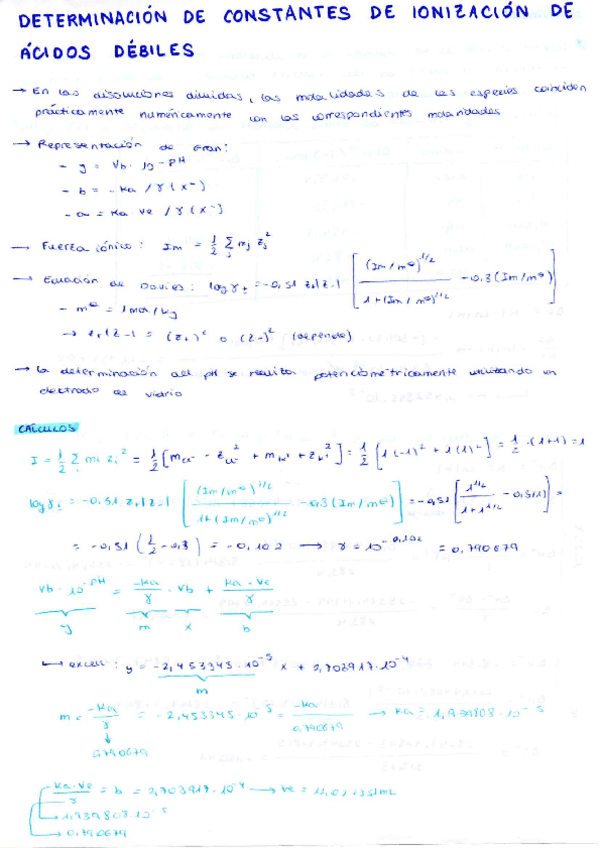 DETERMINACIÓN DE CONSTANTES DE IONIZACIÓN DE
ÁCIDOS DÉBILES
→ En las disoluciones diluidas, las molalidades de las especies coinciden
prácticamente numéricamente con las correspondientes molaridades
→ Representación de Gran:
- y = Vb · 10^-pH
- b = -Ka / γ(x⁻)
- a = Ka Ve / γ(x⁻)
→ Fuerza iónica: Im = 1/2 Σj mj zj²
→ Ecuación de Davies: log γ± = -0,51 z+|z-| [ (Im/m⊖)^1/2 / 1+(Im/m⊖)^1/2 - 0,3 (Im/m⊖) ]
- m⊖ = 1 mol/kg
→ z+|z-| = (z+)² o (z-)² (depende)
→ La determinación del pH se realiza potenciométricamente utilizando un
electrodo de vidrio
CÁLCULOS
I = 1/2 Σi mi zi² = 1/2 [ mCl⁻ - zCl⁻² + mK⁺ + zK⁺² ] = 1/2 [ 1(-1)² + 1(1)² ] = 1/2 · (1+1) = 1
log γ± = -0,51 z+|z-| [ (Im/m⊖)^1/2 / 1+(Im/m⊖)^1/2 - 0,3 (Im/m⊖) ] = -0,51 [ 1^1/2 / 1+1^1/2 - 0,3(1) ] =
= -0,51 ( 1/2 - 0,3 ) = -0,102 → γ = 10^-0,102 = 0,790679
Vb · 10^-pH = -Ka/γ · Vb + Ka · Ve/γ
y m x b
↳ excel: y = -2,453345·10^-5 x + 2,702917·10^-4
m
m = -Ka/γ = -2,453345·10^-5 = -Ka/0,790679 → Ka = 1,939808·10^-5
0,790679
Ka·Ve/γ = b = 2,703917·10^-4 → Ve =
1,939807·10^-5
0,790679